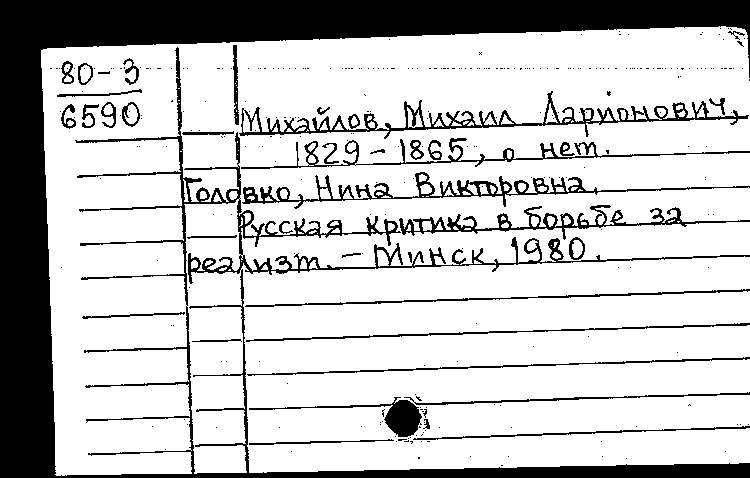 80-3
6590
Михайлов, Михаил Ларионович,
1829-1865, о нет.
Головко, Нина Викторовна.
Русская критика в борьбе за
реализт. - Минск, 1980.